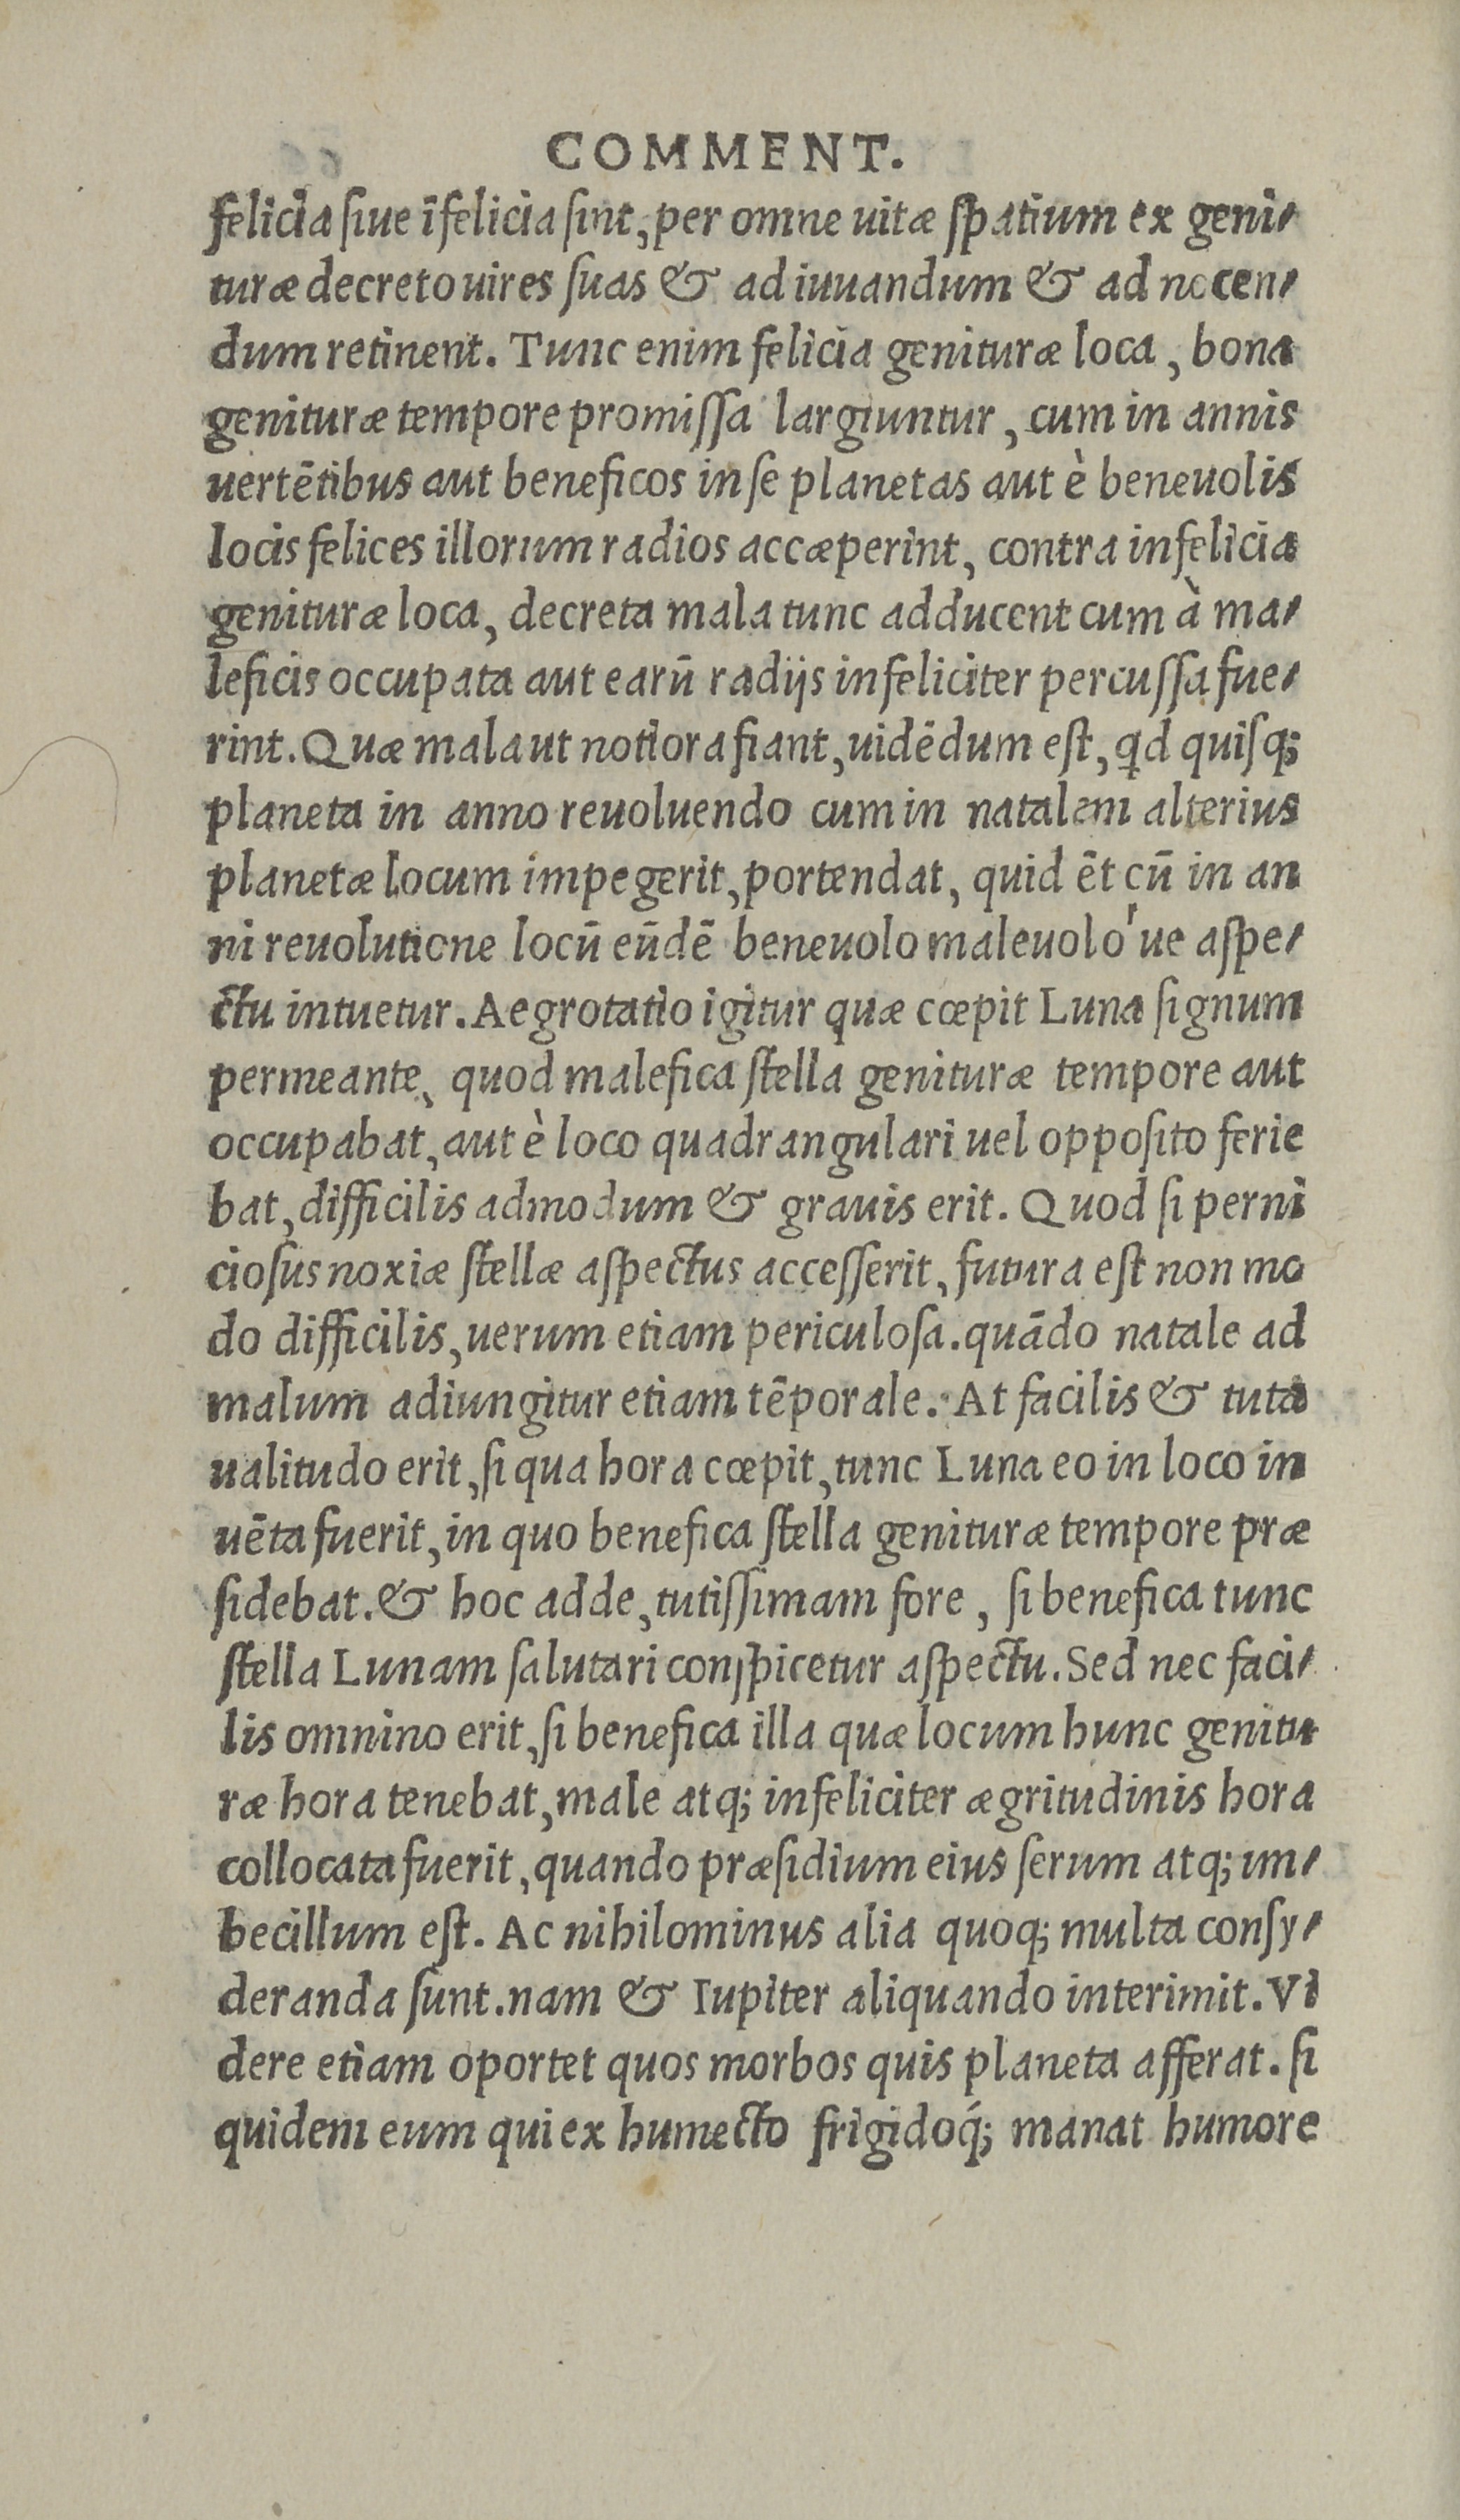 COMMENT.
felicia ſiue īfelicia ſint, per omne uitæ ſpatium ex geni-
turæ decreto uires ſuas & ad iuuandum & ad nocen-
dum retinent. Tunc enim felicia genituræ loca, bona
genituræ tempore promiſſa largiuntur, cum in annis
uertētibus aut beneficos in ſe planetas aut è beneuolis
locis felices illorum radios accæperint, contra infelicia
genituræ loca, decreta mala tunc adducent cum à ma-
leficis occupata aut earū radijs infeliciter percuſſa fue-
rint. Quæ mala ut notiora fiant, uidēdum eſt, qd quiſq;
planeta in anno reuoluendo cum in natalem alterius
planetæ locum impegerit, portendat, quid ēt cū in an
ni reuolutione locū eūdē beneuolo maleuolo'ue aſpe-
ctu intuetur. Aegrotatio igitur quæ cœpit Luna ſignum
permeante, quod malefica ſtella genituræ tempore aut
occupabat, aut è loco quadrangulari uel oppoſito ferie
bat, difficilis admodum & grauis erit. Quod ſi perni
cioſus noxiæ ſtellæ aſpectus acceſſerit, futura eſt non mo
do difficilis, uerum etiam periculoſa. quādo natale ad
malum adiungitur etiam tēporale. At facilis & tuta
ualitudo erit, ſi qua hora cœpit, tunc Luna eo in loco in
uēta fuerit, in quo benefica ſtella genituræ tempore præ
ſidebat. & hoc adde, tutiſſimam fore, ſi benefica tunc
ſtella Lunam ſalutari conſpicetur aſpectu. Sed nec faci-
lis omnino erit, ſi benefica illa quæ locum hunc genitu
ræ hora tenebat, male atq; infeliciter ægritudinis hora
collocata fuerit, quando præſidium eius ſerum atq; im-
becillum eſt. Ac nihilominus alia quoq; multa conſy-
deranda ſunt. nam & Iupiter aliquando interimit. Vi
dere etiam oportet quos morbos quis planeta afferat. ſi
quidem eum qui ex humecto frigidoq́; manat humore